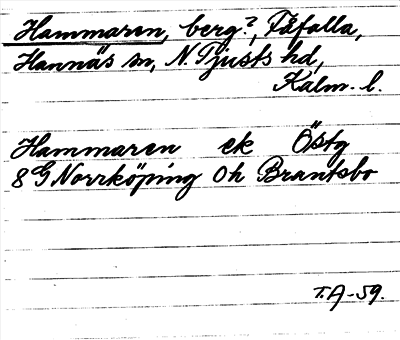 Hammaren, berg?, Fåfalla,
Hannäs sn, N. Tjusts hd,
Kalm. l.
Hammaren ek Östg
8 G Norrköping Oh Brantsbo
T.A-59.